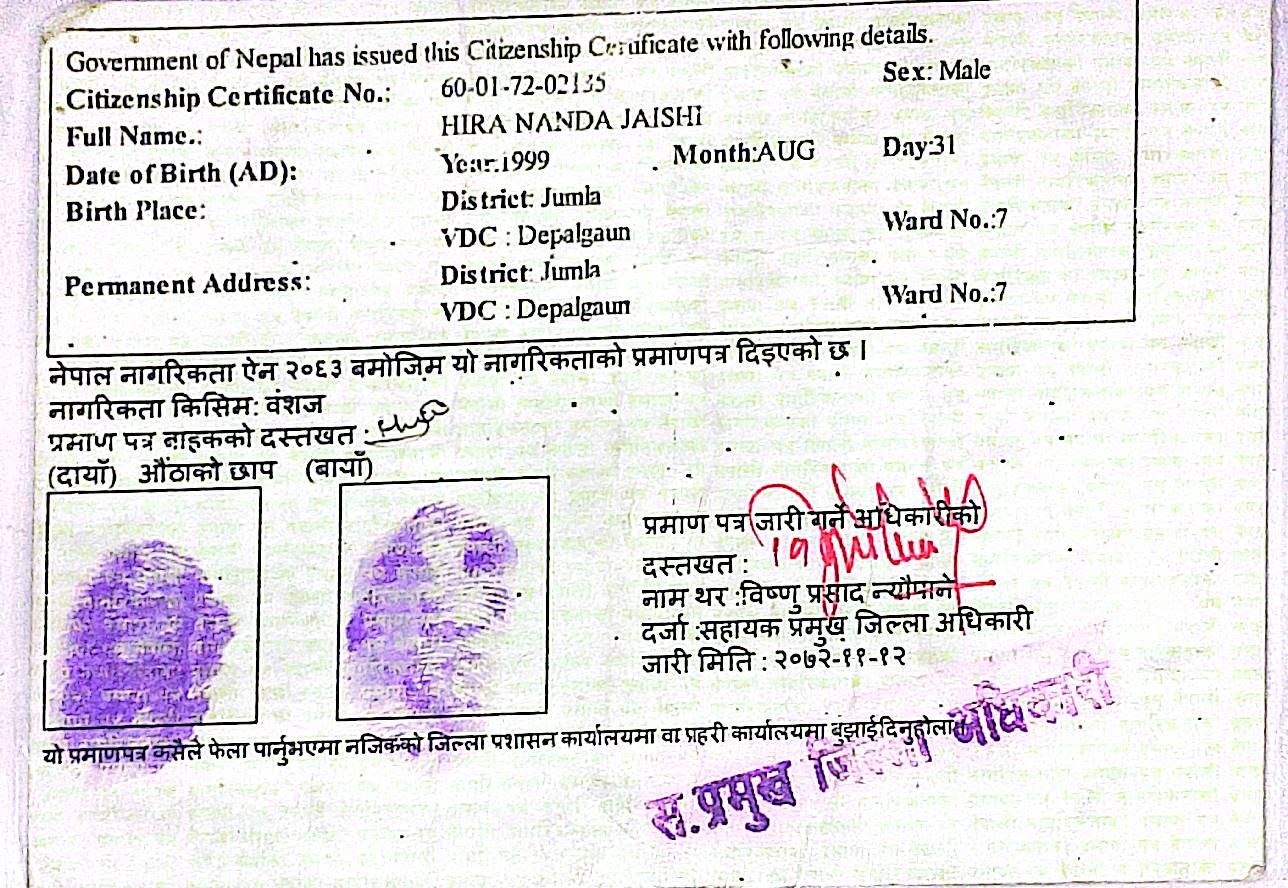 Government of Nepal has issued this Citizenship Certificate with following details.
Citizenship Certificate No.: 60-01-72-02135 Sex: Male
Full Name.: HIRA NANDA JAISHI
Date of Birth (AD): Year:1999 Month:AUG Day:31
Birth Place: District: Jumla
VDC : Depalgaun Ward No.:7
Permanent Address: District: Jumla
VDC : Depalgaun Ward No.:7
नेपाल नागरिकता ऐन २०६३ बमोजिम यो नागरिकताको प्रमाणपत्र दिइएको छ ।
नागरिकता किसिम: वंशज
प्रमाण पत्र वाहकको दस्तखत :
(दायाँ) औंठाको छाप (बायाँ)
प्रमाण पत्र जारी गर्ने अधिकारीको
दस्तखत :
नाम थर :विष्णु प्रसाद न्यौपाने
दर्जा :सहायक प्रमुख जिल्ला अधिकारी
जारी मिति : २०७२-११-१२
यो प्रमाणपत्र कसैले फेला पार्नुभएमा नजिकको जिल्ला प्रशासन कार्यालयमा वा प्रहरी कार्यालयमा बुझाईदिनुहोला
स.प्रमुख जिल्ला अधिकारी